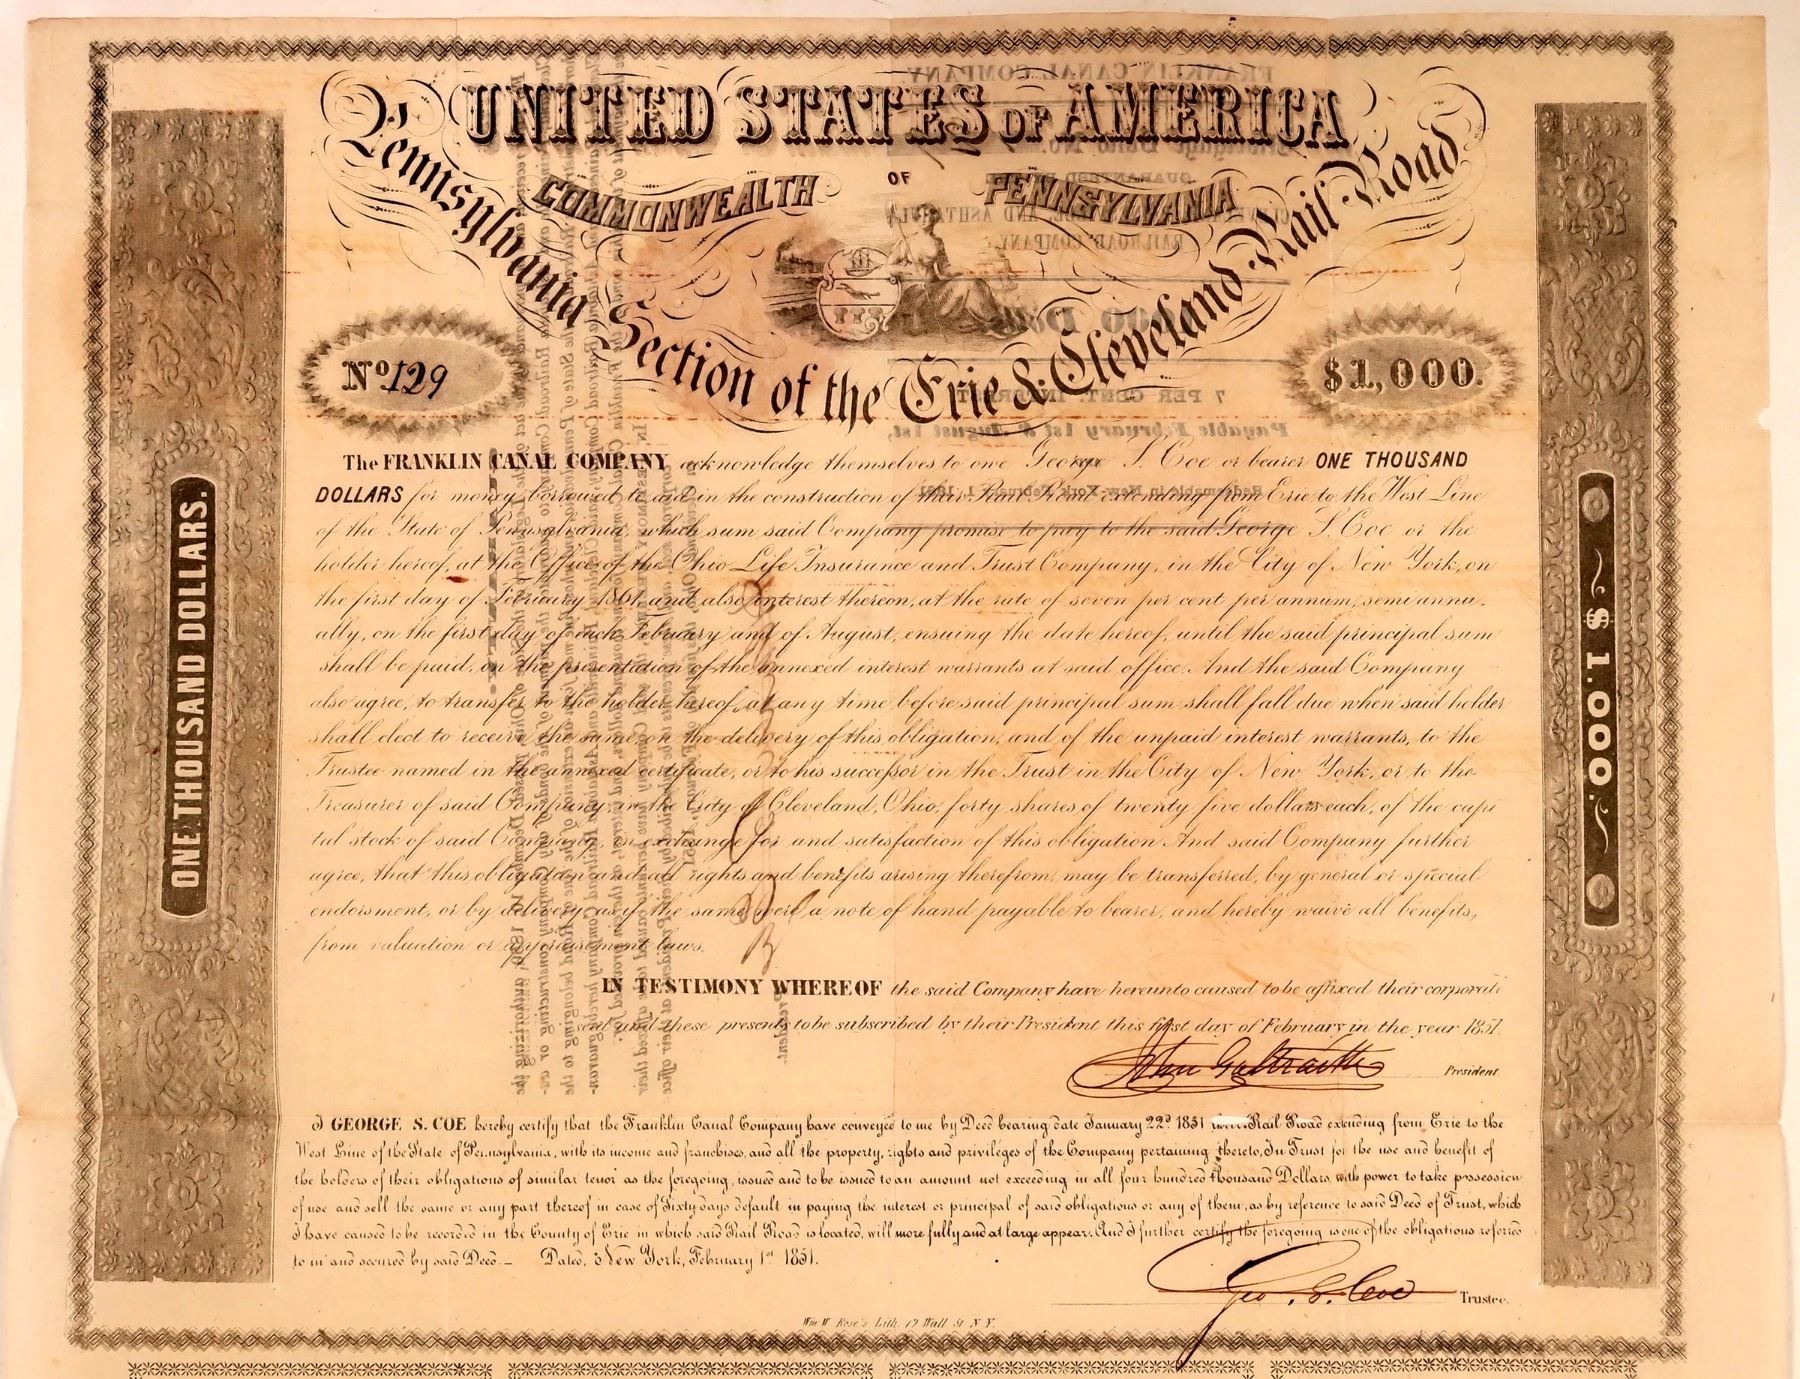 UNITED STATES OF AMERICA
COMMONWEALTH OF PENNSYLVANIA
Pennsylvania Section of the Erie & Cleveland Rail Road
No 129
$1,000.
ONE THOUSAND DOLLARS.
$ 1.000.
The FRANKLIN CANAL COMPANY acknowledge themselves to owe George S. Coe or bearer ONE THOUSAND
DOLLARS for money borrowed to aid in the construction of their Rail Road extending from Erie to the West Line
of the State of Pennsylvania, which sum said Company promise to pay to the said George S. Coe or the
holder hereof, at the Office of the Ohio Life Insurance and Trust Company, in the City of New York, on
the first day of February 1861, and also interest thereon, at the rate of seven per cent per annum, semi annu-
ally, on the first day of each February and of August, ensuing the date hereof, until the said principal sum
shall be paid, on the presentation of the annexed interest warrants at said office. And the said Company
also agree, to transfer to the holder hereof, at any time before said principal sum shall fall due when said holder
shall elect to receive the same on the delivery of this obligation, and of the unpaid interest warrants, to the
Trustee named in the annexed certificate, or to his successor in the Trust in the City of New York, or to the
Treasurer of said Company, in the City of Cleveland, Ohio, forty shares of twenty five dollars each, of the capi
tal stock of said Company, in exchange for and satisfaction of this obligation And said Company further
agree, that this obligation and all rights and benefits arising therefrom, may be transferred, by general or special
endorsment, or by delivery as if the same were a note of hand payable to bearer, and hereby waive all benefits,
from valuation or appraisement laws.
IN TESTIMONY WHEREOF the said Company have hereunto caused to be affixed their corporate
seal and these presents to be subscribed by their President this first day of February in the year 1851.
John Galbraith President
I GEORGE S. COE hereby certify that the Franklin Canal Company have conveyed to me by Deed bearing date January 22d 1851 their Rail Road extending from Erie to the
West Line of the State of Pennsylvania, with its income and franchises, and all the property, rights and privileges of the Company pertaining thereto, In Trust for the use and benefit of
the holders of their obligations of similar tenor as the foregoing, issued and to be issued to an amount not exceeding in all four hundred thousand Dollars, with power to take possession
of use and sell the same or any part thereof in case of Sixty days default in paying the interest or principal of said obligations or any of them, as by reference to said Deed of Trust, which
I have caused to be recorded in the County of Erie in which said Rail Road is located, will more fully and at large appear. And I further certify the foregoing is one of the obligations referred
to in and secured by said Deed. — Dated, New York, February 1st 1851.
Geo. S. Coe Trustee.
Wm W. Rose's Lith. 19 Wall St N.Y.